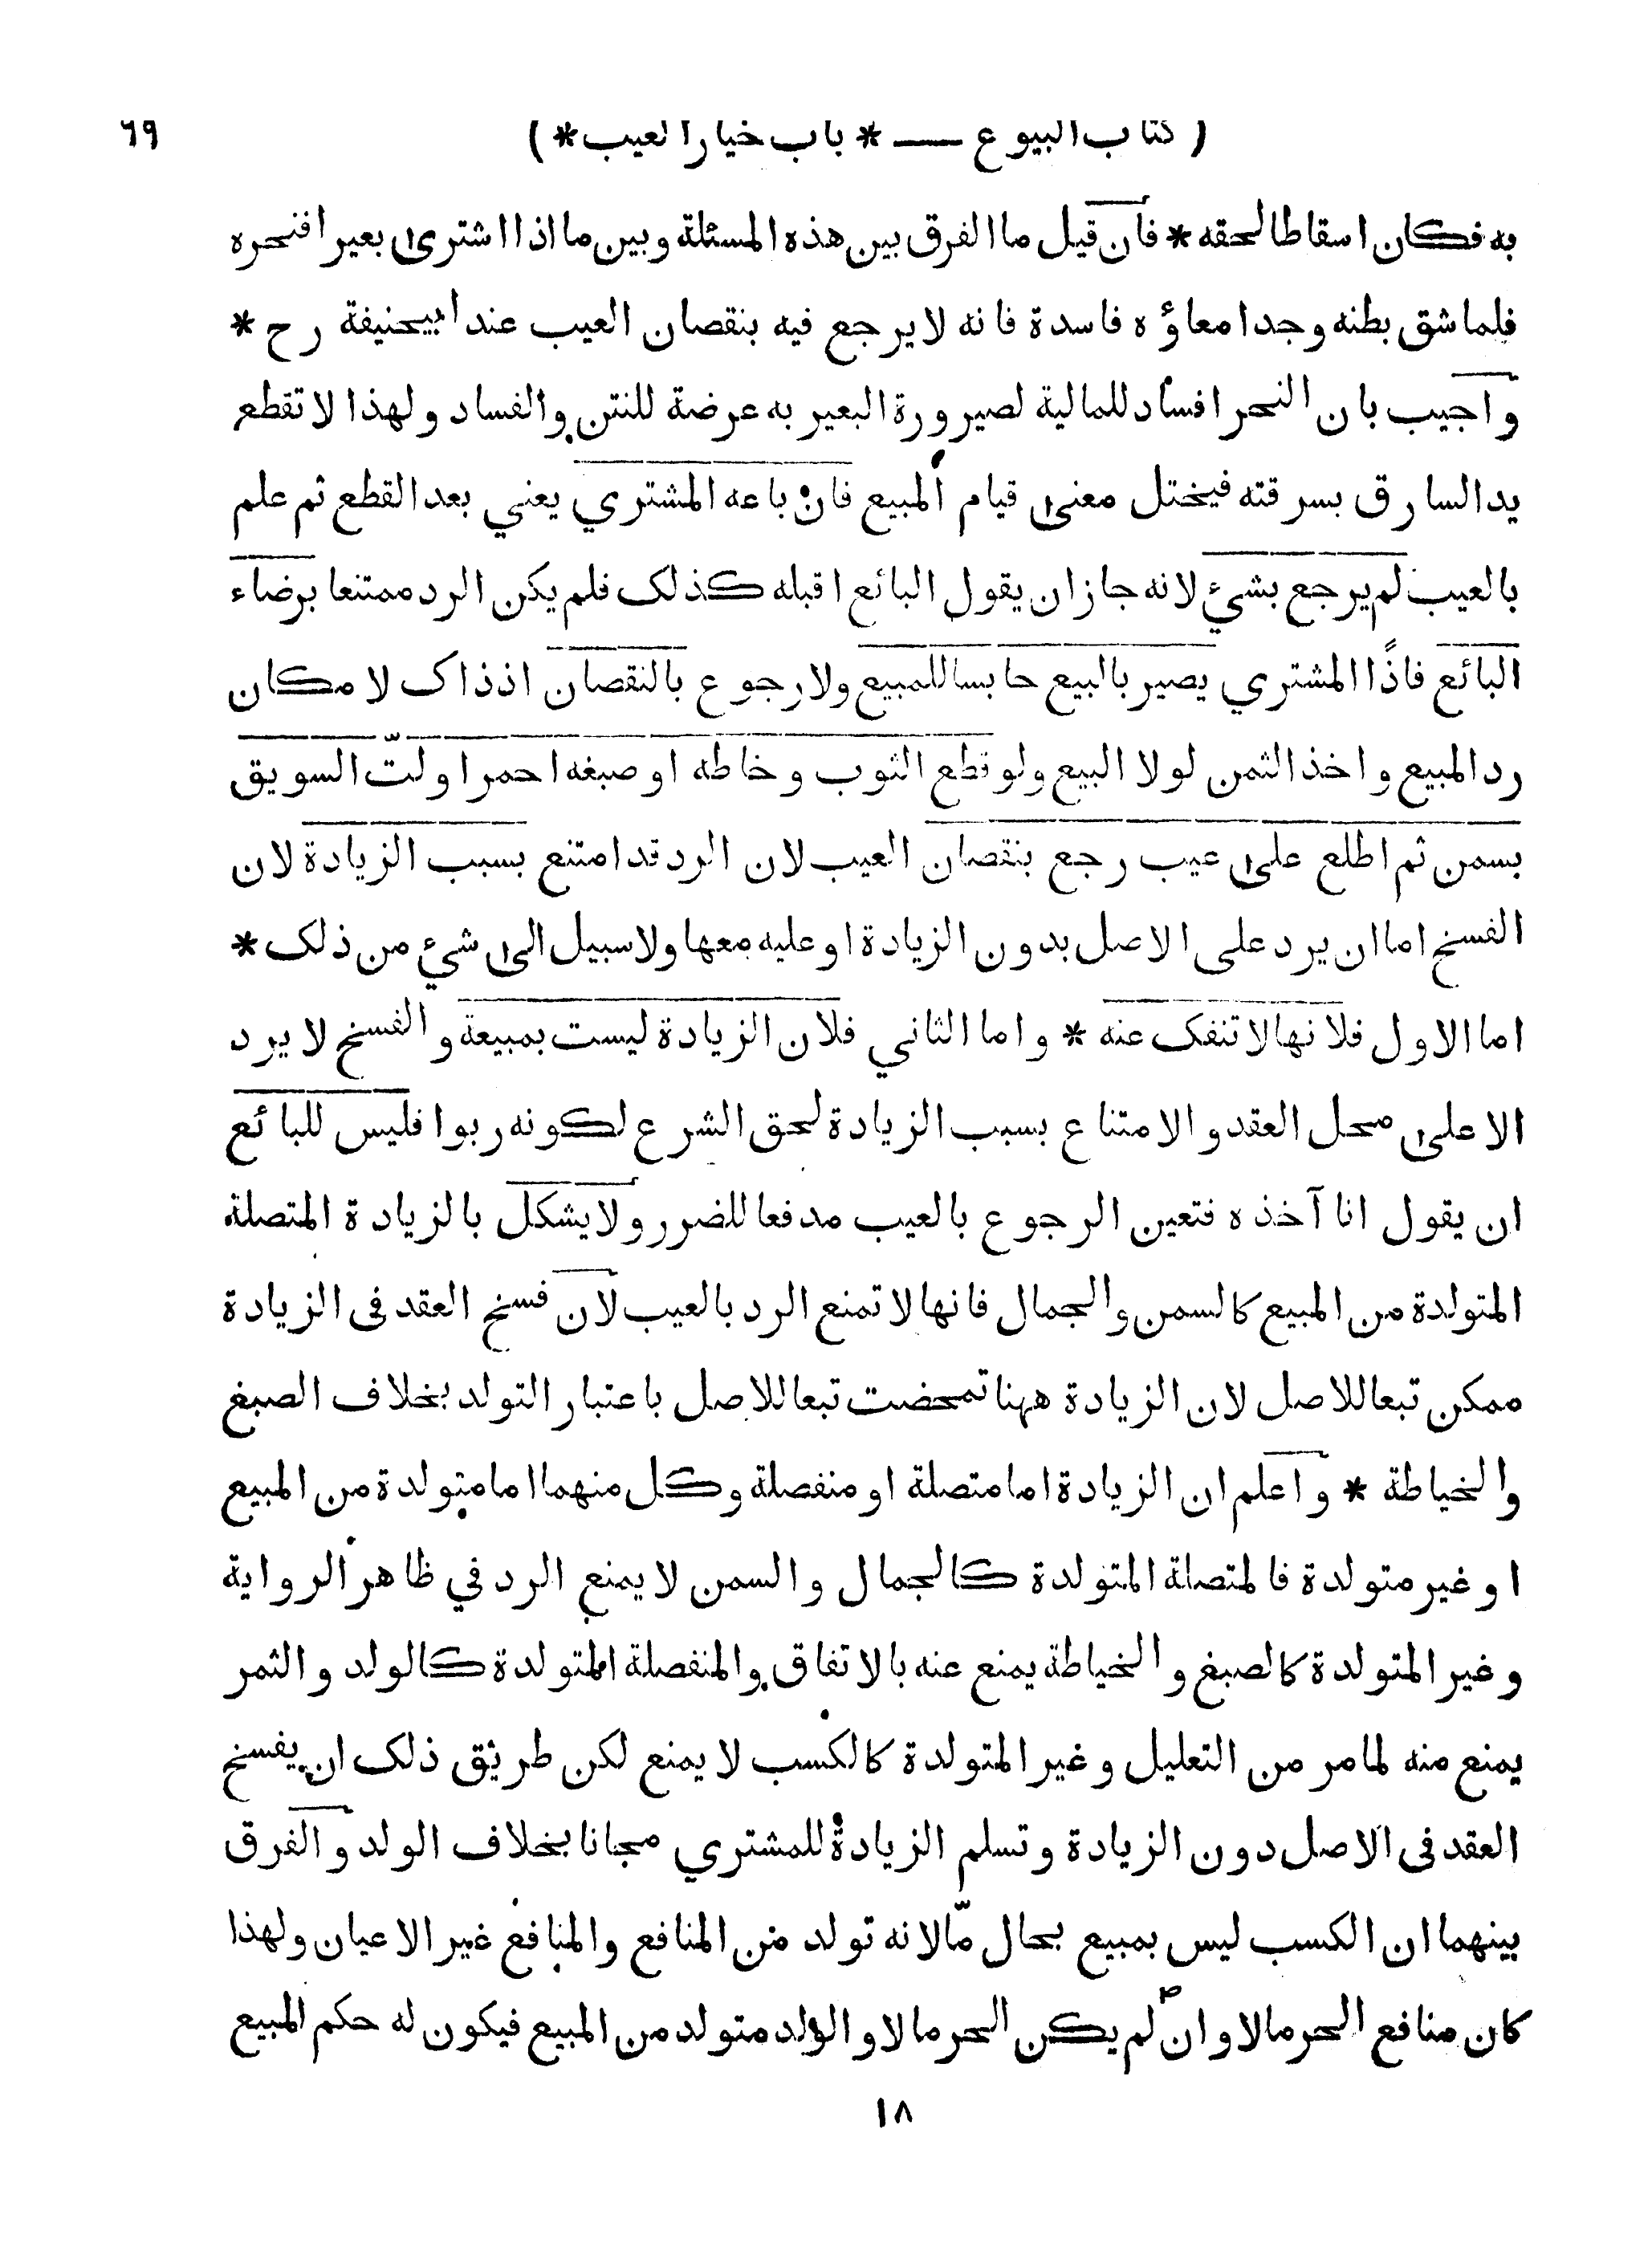 ( كتاب البيوع — * باب خيار العيب * ) ٦٩
به فكان اسقاطا لحقه * فان قيل ما الفرق بين هذه المسئلة وبين ما اذا اشترى بعيرا فنحره
فلما شق بطنه وجد امعاؤه فاسدة فانه لا يرجع فيه بنقصان العيب عند ابيحنيفة رح *
واجيب بان النحر افساد للمالية لصيرورة البعير به عرضة للنتن والفساد ولهذا لا تقطع
يد السارق بسرقته فيختل معنى قيام المبيع فان باعه المشتري يعني بعد القطع ثم علم
بالعيب لم يرجع بشئ لانه جاز ان يقول البائع اقبله كذلك فلم يكن الرد ممتنعا برضاء
البائع فاذًا المشتري يصير بالبيع حابسا للمبيع ولا رجوع بالنقصان اذ ذاك لامكان
رد المبيع واخذ الثمن لولا البيع ولو قطع الثوب وخاطه او صبغه احمر او لتّ السويق
بسمن ثم اطلع على عيب رجع بنقصان العيب لان الرد قد امتنع بسبب الزيادة لان
الفسخ اما ان يرد على الاصل بدون الزيادة او عليه معها ولا سبيل الى شئ من ذلك *
اما الاول فلانها لا تنفك عنه * واما الثاني فلان الزيادة ليست بمبيعة والفسخ لا يرد
الا على محل العقد والامتناع بسبب الزيادة لحق الشرع لكونه ربوا فليس للبائع
ان يقول انا آخذه فتعين الرجوع بالعيب مدفعا للضرر ولا يشكل بالزيادة المتصلة
المتولدة من المبيع كالسمن والجمال فانها لا تمنع الرد بالعيب لان فسخ العقد فى الزيادة
ممكن تبعا للاصل لان الزيادة ههنا تمحضت تبعا للاصل باعتبار التولد بخلاف الصبغ
والخياطة * واعلم ان الزيادة اما متصلة او منفصلة وكل منهما اما متولدة من المبيع
او غير متولدة فالمتصلة المتولدة كالجمال والسمن لا يمنع الرد في ظاهر الرواية
وغير المتولدة كالصبغ والخياطة يمنع عنه بالاتفاق والمنفصلة المتولدة كالولد والثمر
يمنع منه لما مر من التعليل وغير المتولدة كالكسب لا يمنع لكن طريق ذلك ان يفسخ
العقد فى الاصل دون الزيادة وتسلم الزيادة للمشتري مجانا بخلاف الولد والفرق
بينهما ان الكسب ليس بمبيع بحال مّا لانه تولد من المنافع والمنافع غير الاعيان ولهذا
كان منافع الحر مالا وان لم يكن الحر مالا والولد متولد من المبيع فيكون له حكم المبيع
١٨